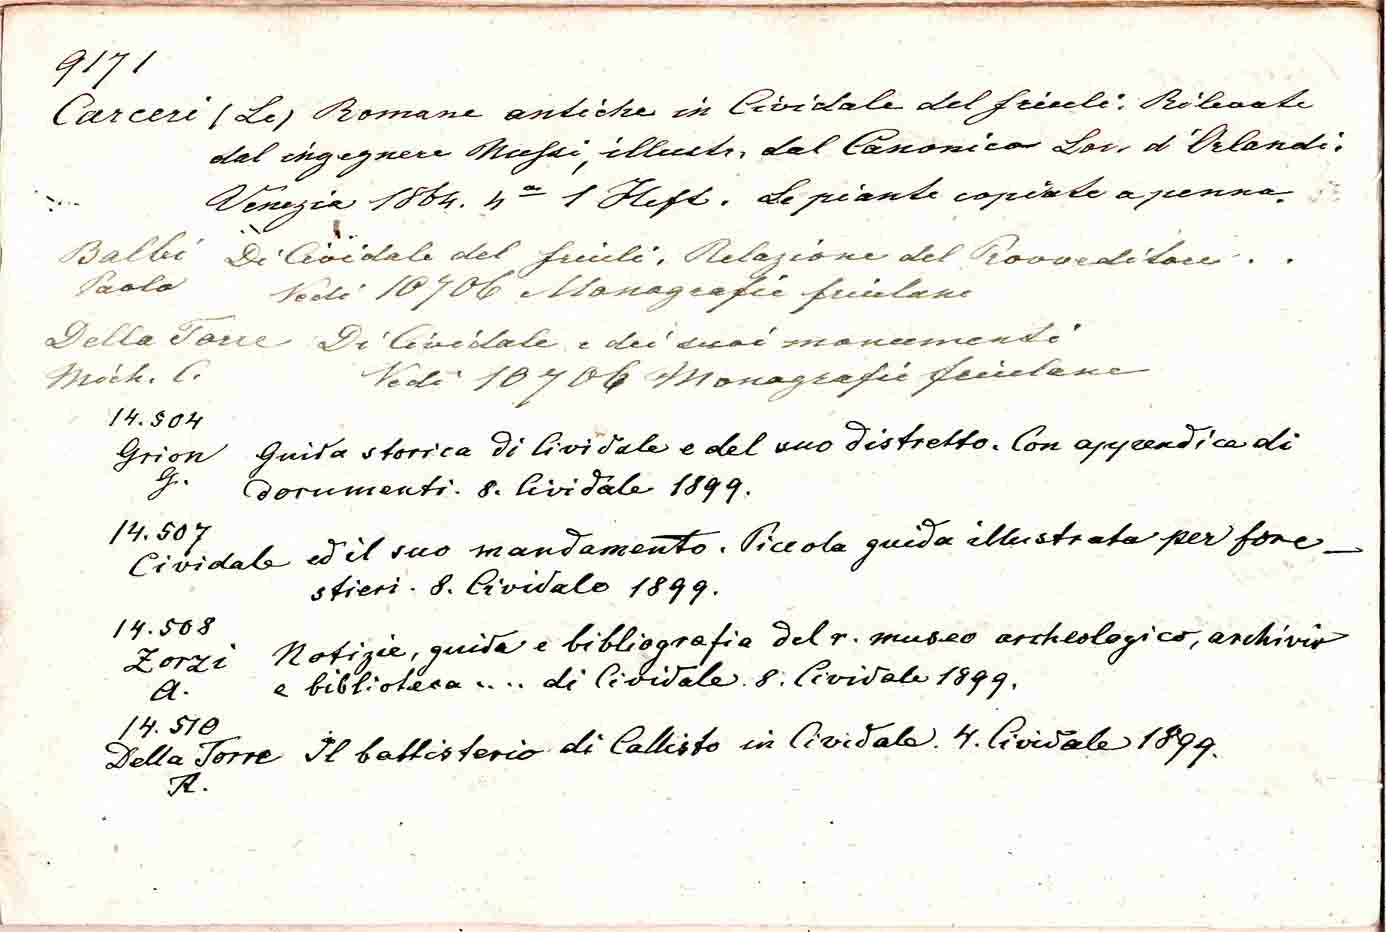 9171
Carceri (Le) Romane antiche in Cividale del friuli. Rilevate
dal ingegnere Nussi, illustr. dal Canonico Lor. d'Orlandi.
Venezia 1864. 4º 1 Heft. Le piante copiate a penna.
Balbi Di Cividale del friuli. Relazione del Provveditore . .
Paolo Vedi 10706 Monografie friulane
Della Torre Di Cividale e dei suoi monumenti
Mich. C. Vedi 10706 Monografie friulane
14.504
Grion Guida storica di Cividale e del suo distretto. Con appendice di
G. documenti. 8. Cividale 1899.
14.507
Cividale ed il suo mandamento. Piccola guida illustrata per fore-
stieri. 8. Cividale 1899.
14.508
Zorzi Notizie, guida e bibliografia del r. museo archeologico, archivio
A. e biblioteca .... di Cividale. 8. Cividale 1899.
14.510
Della Torre Il battisterio di Callisto in Cividale. 4. Cividale 1899.
R.